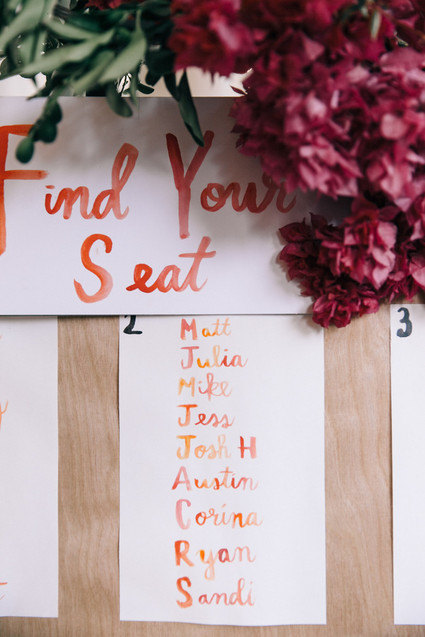 Find Your
Seat
2
3
Matt
Julia
Mike
Jess
Josh H
Austin
Corina
Ryan
Sandi